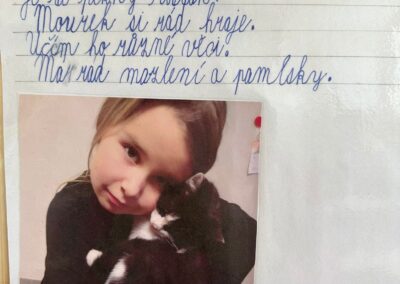 Mourek si rád hraje.
Učím ho různé věci.
Má rád mazlení a pamlsky.